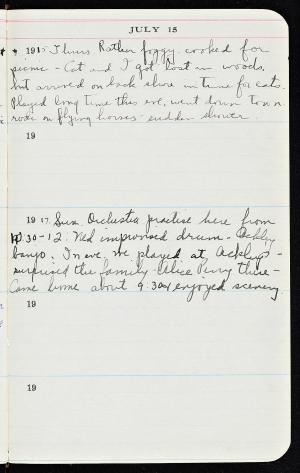 JULY 15
1915 Thurs. Rather foggy. cooked for
picnic - Cat and I got lost in woods,
but arrived on back shore in time for eats.
Played long time this eve, went down town
rode on flying horses. sudden shower.
19
1917. Sun. Orchestra practise here from
10.30-12. Ned improvised drum - Ackley
banjo. In eve. we played at Ackleys -
surprised the family - Alice Perry there -
Came home about 9:30 & enjoyed scenery
19
19